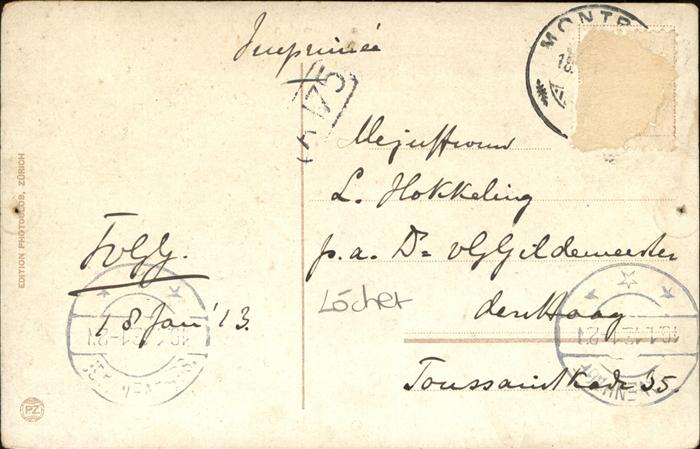 Imprimée
MONTR
18.
175
EDITION PHOTOGLOB, ZÜRICH
Mejuffrouw
L. Hokkeling
p.a. Dr v Gildemeester
den Haag
Toussaintkade 35.
Löcher
18 Jan '13.
PZ